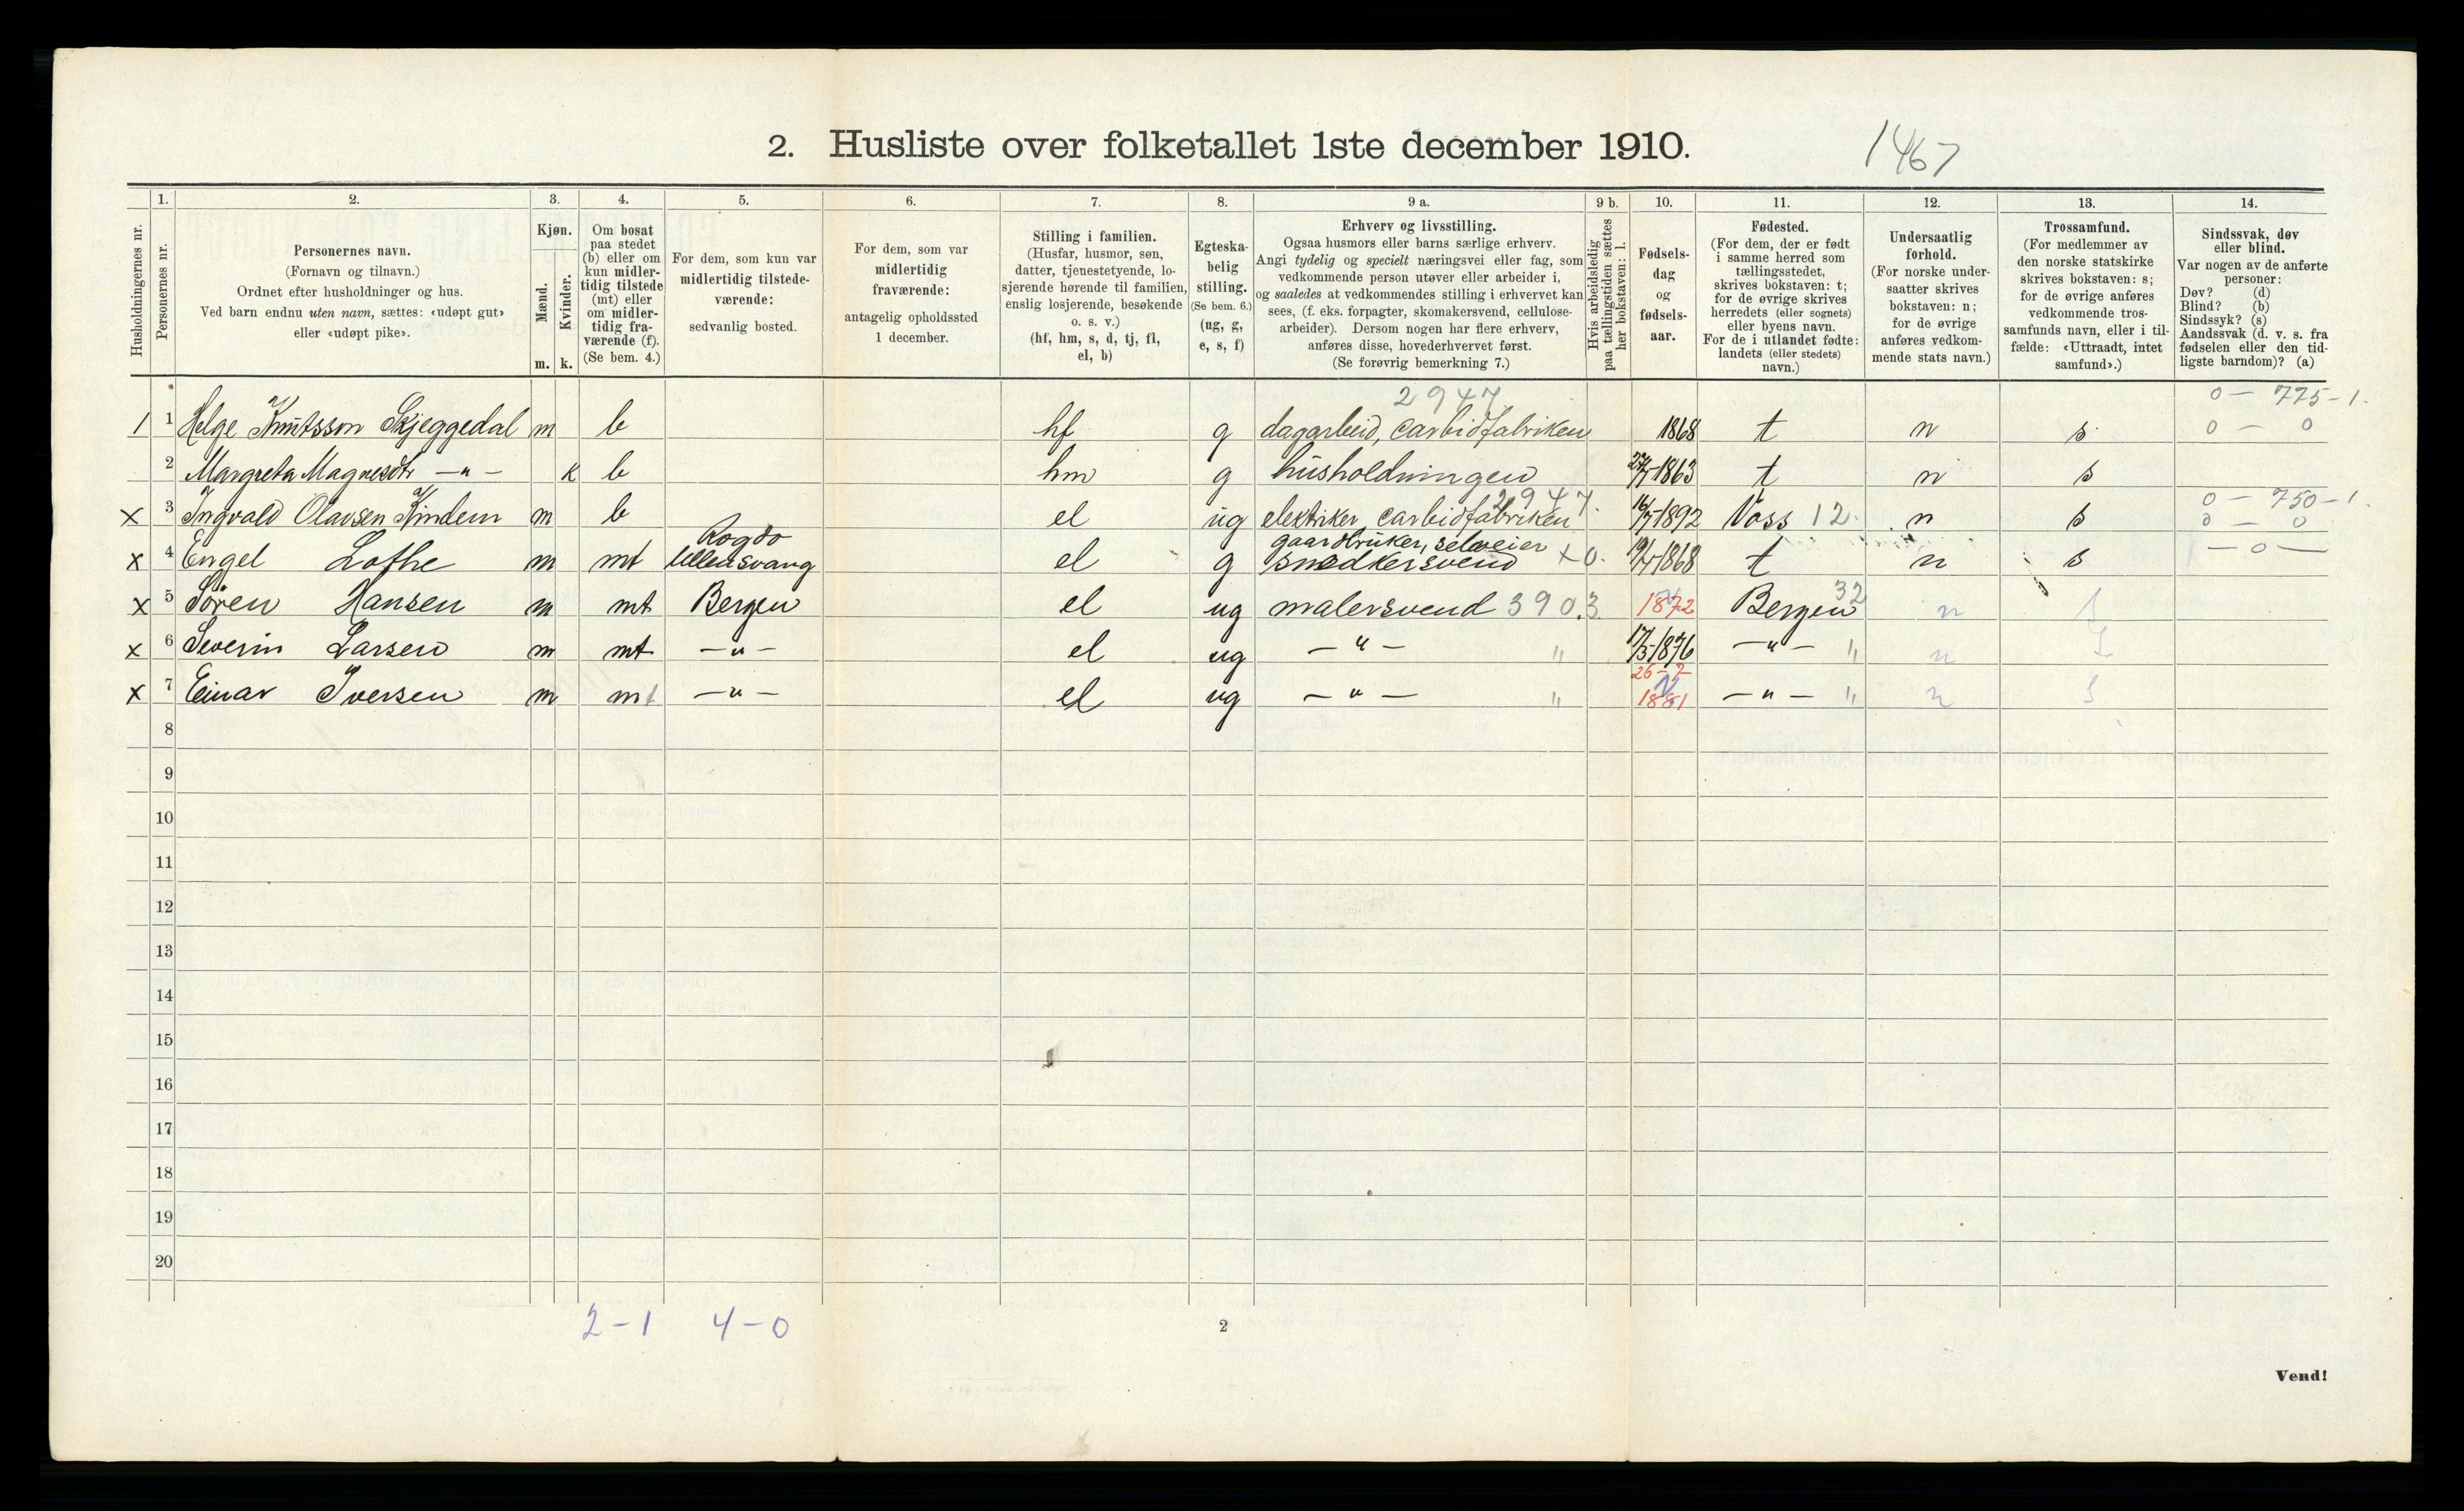 2. Husliste over folketallet 1ste december 1910.
1467
1. 2. 3. 4. 5. 6. 7. 8. 9 a. 9 b. 10. 11. 12. 13. 14.
Husholdningernes nr.
Personernes nr.
Personernes navn.
(Fornavn og tilnavn.)
Ordnet efter husholdninger og hus.
Ved barn endnu uten navn, sættes: «udøpt gut»
eller «udøpt pike».
Kjøn.
Mænd.
Kvinder.
m. k.
Om bosat
paa stedet
(b) eller om
kun midler-
tidig tilstede
(mt) eller
om midler-
tidig fra-
værende (f).
(Se bem. 4.)
For dem, som kun var
midlertidig tilstede-
værende:
sedvanlig bosted.
For dem, som var
midlertidig
fraværende:
antagelig opholdssted
1 december.
Stilling i familien.
(Husfar, husmor, søn,
datter, tjenestetyende, lo-
sjerende hørende til familien,
enslig losjerende, besøkende
o. s. v.)
(hf, hm, s, d, tj, fl,
el, b)
Egteska-
belig
stilling.
(Se bem. 6.)
(ug, g,
e, s, f)
Erhverv og livsstilling.
Ogsaa husmors eller barns særlige erhverv.
Angi tydelig og specielt næringsvei eller fag, som
vedkommende person utøver eller arbeider i,
og saaledes at vedkommendes stilling i erhvervet kan
sees, (f. eks. forpagter, skomakersvend, cellulose-
arbeider). Dersom nogen har flere erhverv,
anføres disse, hovederhvervet først.
(Se forøvrig bemerkning 7.)
Hvis arbeidsledig
paa tællingstiden sættes
her bokstaven: l.
Fødsels-
dag
og
fødsels-
aar.
Fødested.
(For dem, der er født
i samme herred som
tællingsstedet,
skrives bokstaven: t;
for de øvrige skrives
herredets (eller sognets)
eller byens navn.
For de i utlandet fødte:
landets (eller stedets)
navn.)
Undersaatlig
forhold.
(For norske under-
saatter skrives
bokstaven: n;
for de øvrige
anføres vedkom-
mende stats navn.)
Trossamfund.
(For medlemmer av
den norske statskirke
skrives bokstaven: s;
for de øvrige anføres
vedkommende tros-
samfunds navn, eller i til-
fælde: «Uttraadt, intet
samfund».)
Sindssvak, døv
eller blind.
Var nogen av de anførte
personer:
Døv? (d)
Blind? (b)
Sindssyk? (s)
Aandssvak (d. v. s. fra
fødselen eller den tid-
ligste barndom)? (a)
2947 0 - 775-1.
1 1 Helge Knutsson Skjeggedal m b hf g dagarbeid, carbidfabriken 1868 t n s 0 - 0
2 Margreta Magnesdtr -"- k b hm g husholdningen 1863 t n s
2947. 0 - 750-1
x 3 Ingvald Olavsen Kindem m b el ug elektriker, carbidfabriken 16/7-1892 Voss 12. n s 0 - 0
Rogdo gaardbruker, selveier
x 4 Engel Lofthe m mt Ullensvang el g snedkersvend x0. 1868 t n s - 0 -
x 5 Sören Hansen m mt Bergen el ug malersvend 390.3 1872 Bergen 32 n s
x 6 Severin Larsen m mt -"- el ug -"- " 17/5-1876 -"- " n s
26-2
x 7 Einar Iversen m mt -"- el ug -"- " 1881 -"- " n s
8
9
10
11
12
13
14
15
16
17
18
19
20
2-1 4-0
2
Vend!